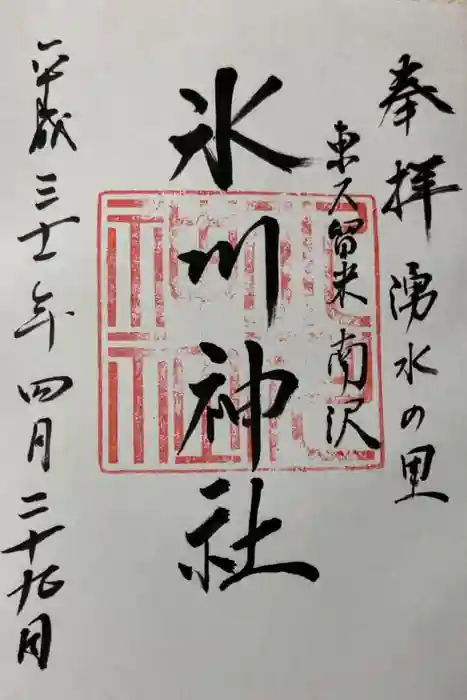 奉拝 湧水の里
東久留米 南沢
氷川神社
平成三十一年四月二十九日